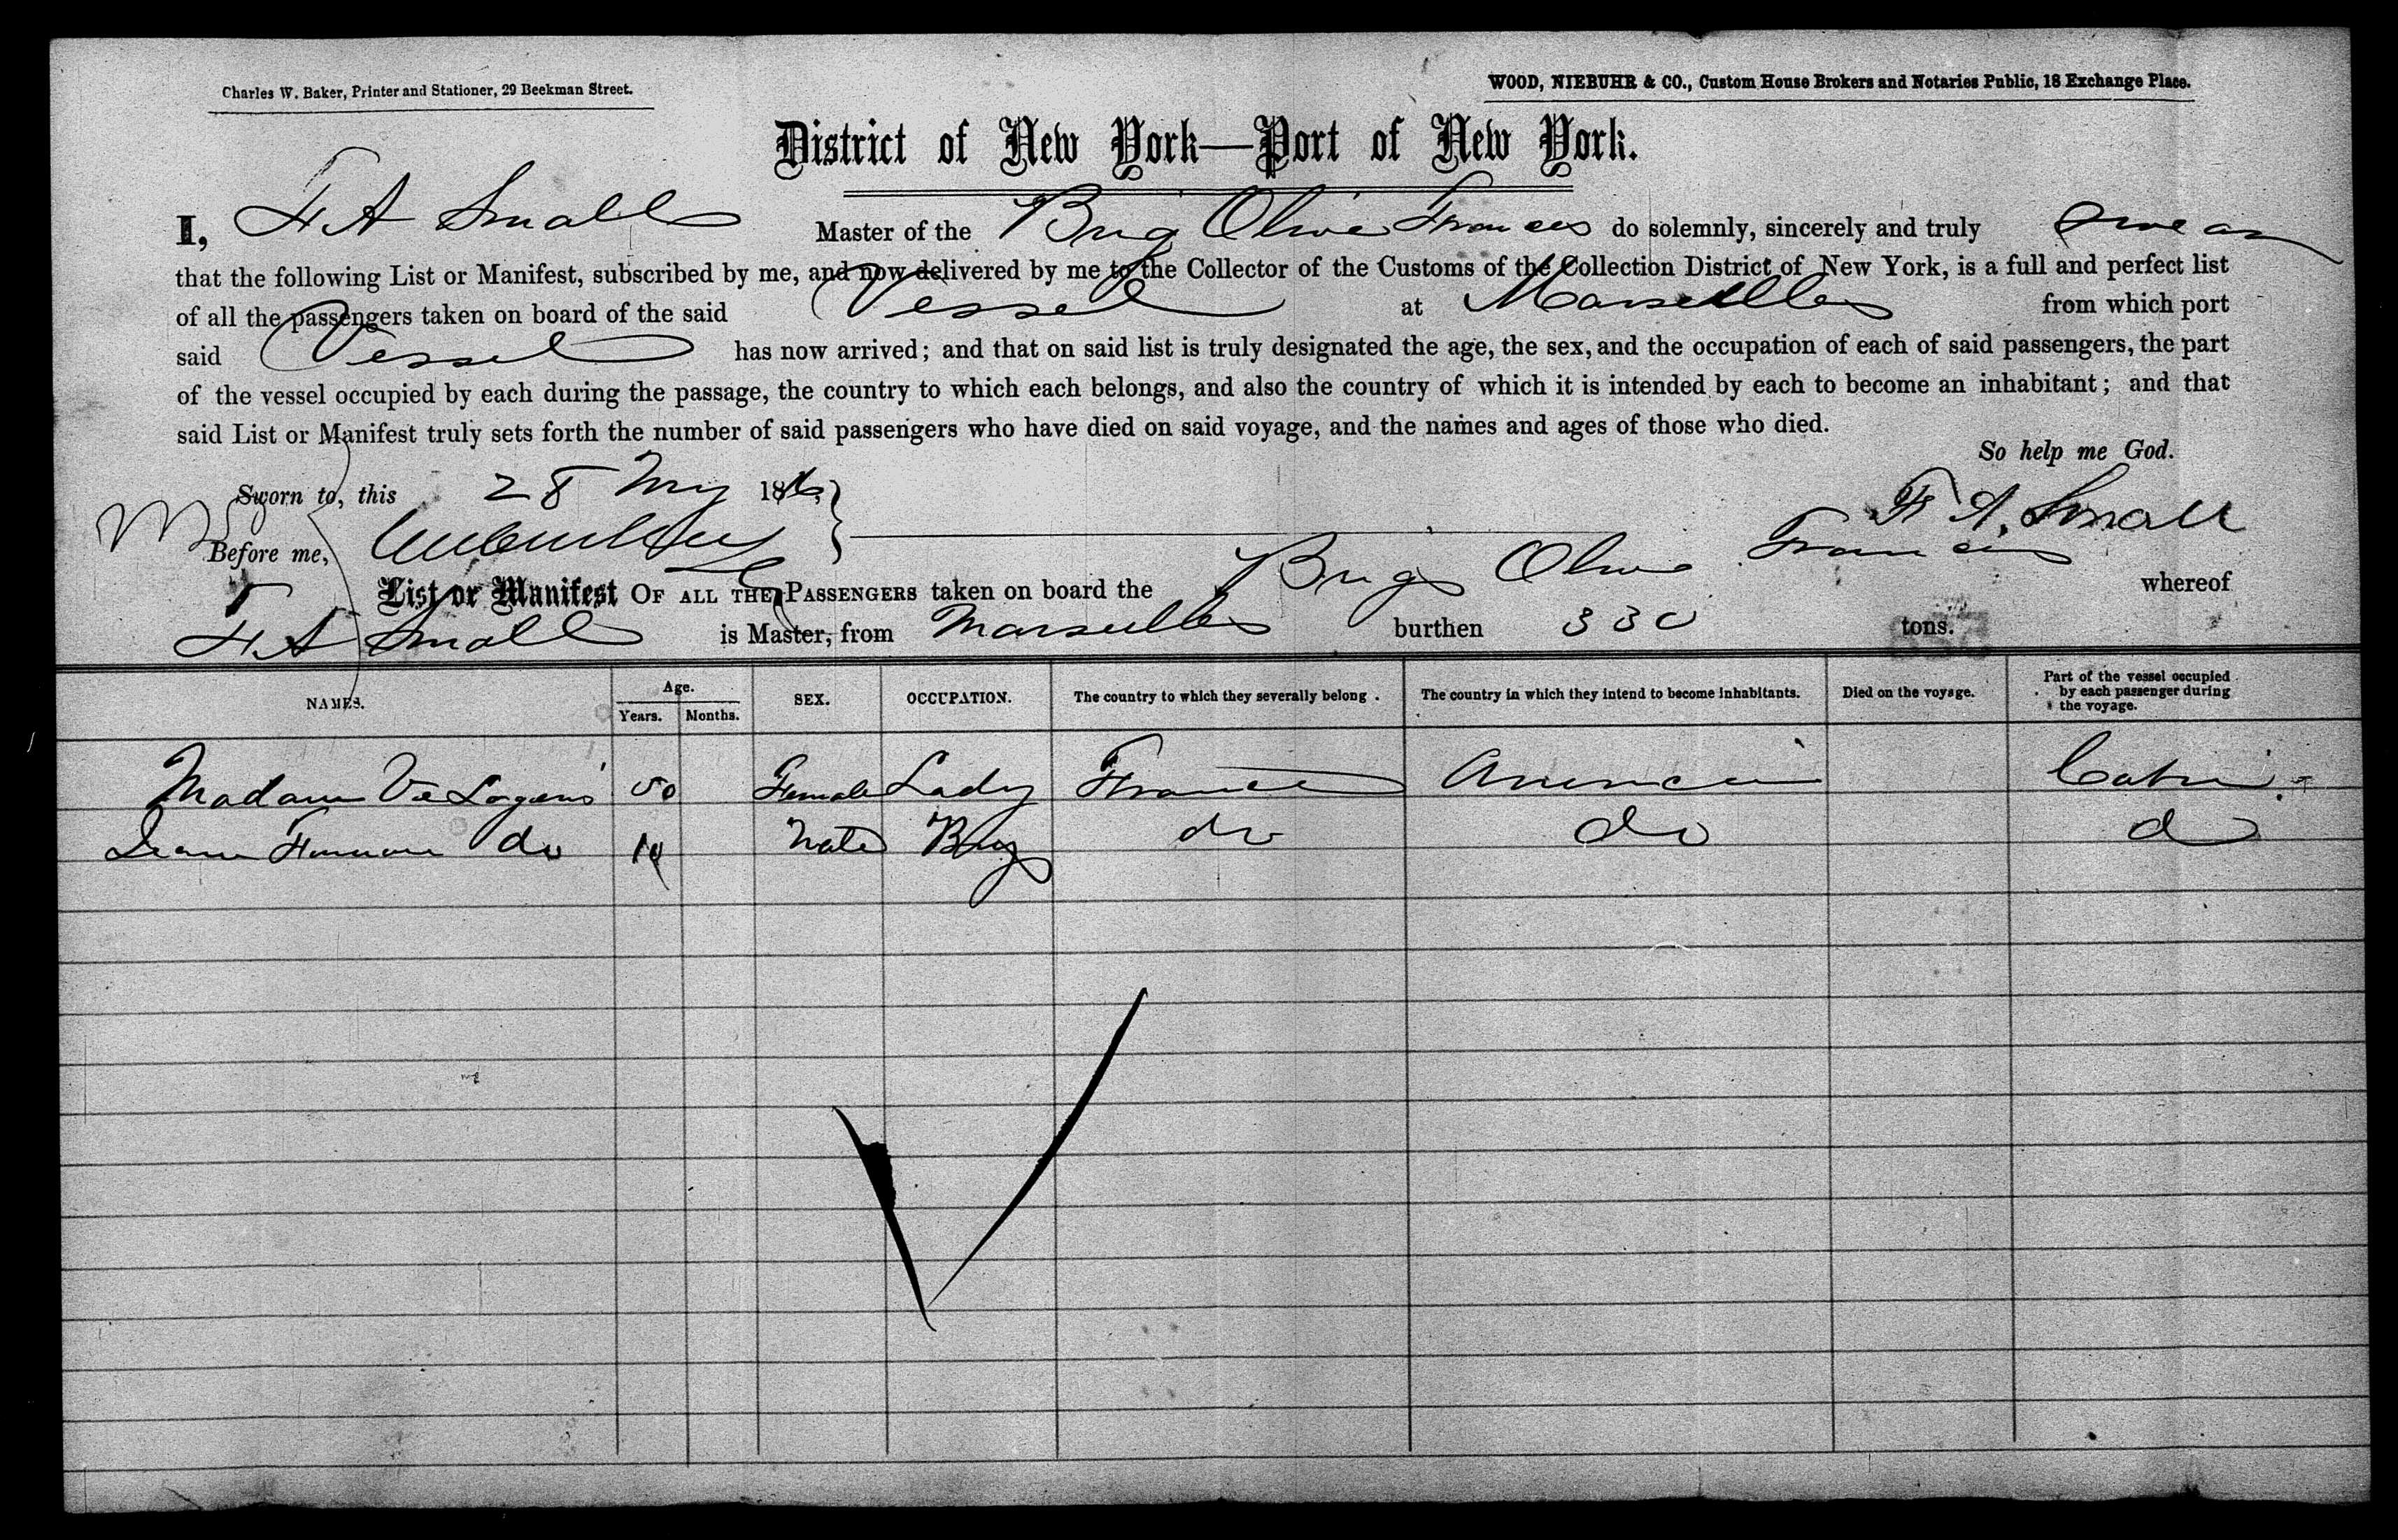 Charles W. Baker, Printer and Stationer, 29 Beekman Street.
WOOD, NIEBUHR & CO., Custom House Brokers and Notaries Public, 18 Exchange Place.
District of New York—Port of New York.
I, F A Small Master of the Brig Olive Frances do solemnly, sincerely and truly swear
that the following List or Manifest, subscribed by me, and now delivered by me to the Collector of the Customs of the Collection District of New York, is a full and perfect list
of all the passengers taken on board of the said Vessel at Marseilles from which port
said Vessel has now arrived; and that on said list is truly designated the age, the sex, and the occupation of each of said passengers, the part
of the vessel occupied by each during the passage, the country to which each belongs, and also the country of which it is intended by each to become an inhabitant; and that
said List or Manifest truly sets forth the number of said passengers who have died on said voyage, and the names and ages of those who died.
So help me God.
Sworn to, this 28 My 18
F. A. Small
Before me,
List or Manifest OF ALL THE PASSENGERS taken on board the Brig Olive Frances whereof
F A Small is Master, from Marseilles burthen 330 tons.
NAMES. Age. Years. Months. SEX. OCCUPATION. The country to which they severally belong. The country in which they intend to become inhabitants. Died on the voyage. Part of the vessel occupied by each passenger during the voyage.
Madam 50 Female Lady France America Cabin
do Male Boy do do do